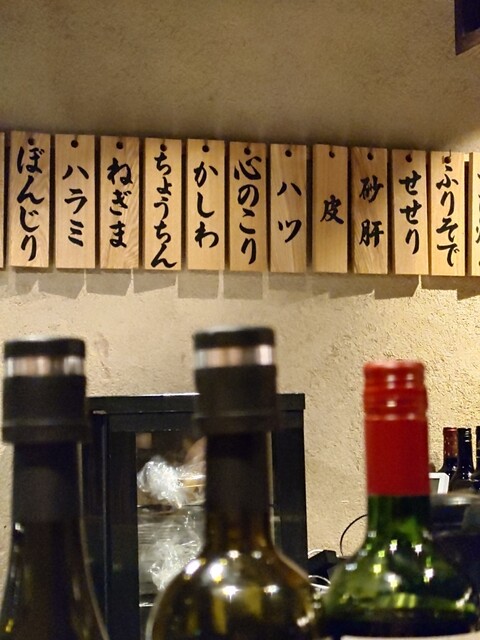 ぼんじり
ハラミ
ねぎま
ちょうちん
かしわ
心のこり
ハツ
皮
砂肝
せせり
ふりそで